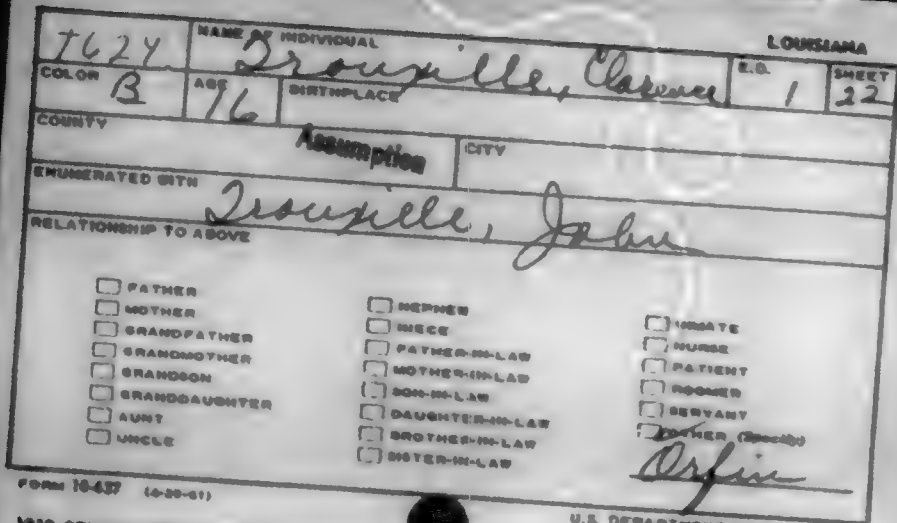 LOUISIANA
T624 NAME OF INDIVIDUAL Trouxille, Clarence E.D. 1 SHEET 22
COLOR B AGE 16 BIRTHPLACE
COUNTY Assumption CITY
ENUMERATED WITH Trouxille, John
RELATIONSHIP TO ABOVE
FATHER
MOTHER
GRANDFATHER
GRANDMOTHER
GRANDSON
GRANDDAUGHTER
AUNT
UNCLE
NEPHEW
NIECE
FATHER-IN-LAW
MOTHER-IN-LAW
SON-IN-LAW
DAUGHTER-IN-LAW
BROTHER-IN-LAW
SISTER-IN-LAW
INMATE
NURSE
PATIENT
ROOMER
SERVANT
OTHER (Specify)
Orfin
FORM 10-637 (6-20-61)
U.S.